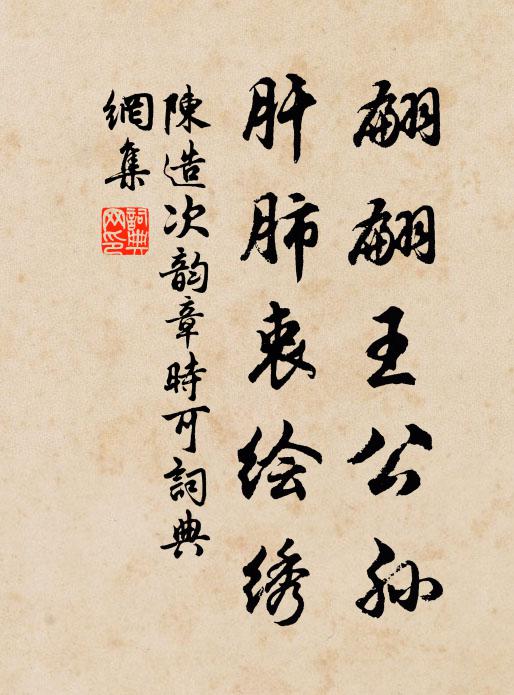 翩翩王公孙
肝肺衷绘绣
陳造次韵章時可詞典
網集
詞典網印